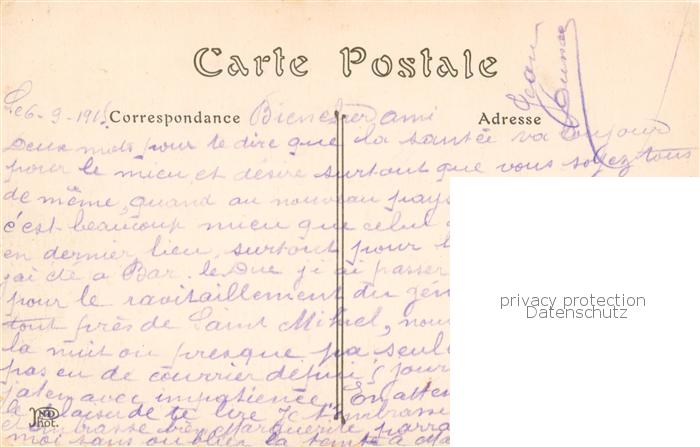 Carte Postale
Le 6-9-191
Correspondance Bien cher ami Adresse Jean
Deux mots pour te dire que la santée va toujour
pour le mieu et désire surtout que vous soyez tous
de même, quand au nouveau pays
c'est beaucoup mieu que celui
en dernier lieu, surtout pour l
j'ai été a Bar le Duc j'i ai passer
pour le ravitaillement du gén
tout près de Saint Mihiel, nou
la nuit ou presque pa seul
pas eu de courrier depui 5 jour
j'aten avec impatience. En atten
le plaisir de te lire je t'embrasse
et embrasse bien Marguerite parra
moi sans oublier la tante a
ND Phot.
privacy protection
Datenschutz